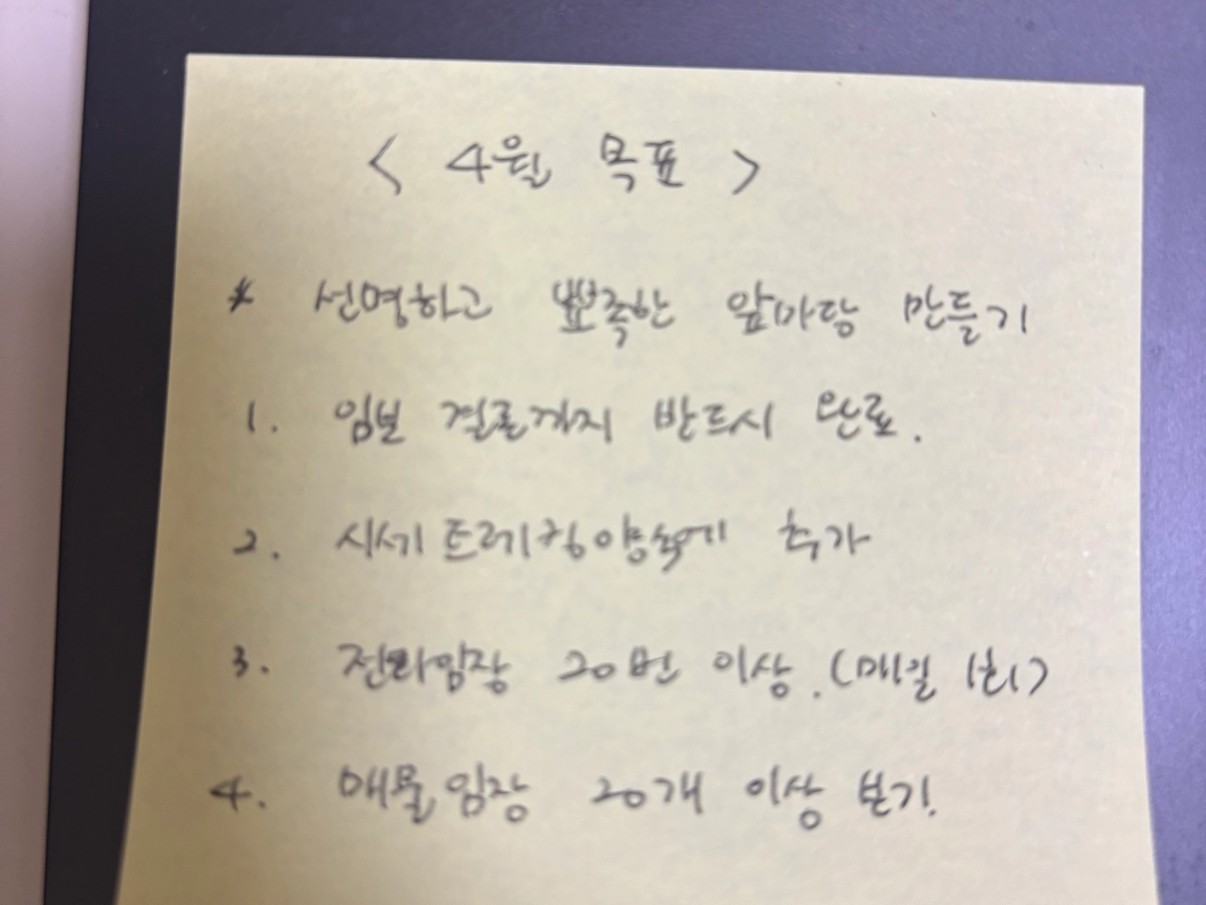 < 4월 목표 >
* 선명하고 뾰족한 앞마당 만들기
1. 임보 결론까지 반드시 완료.
2. 시세트레킹양식에 추가
3. 전화임장 20번 이상.(매일 1회)
4. 매물임장 20개 이상 보기.